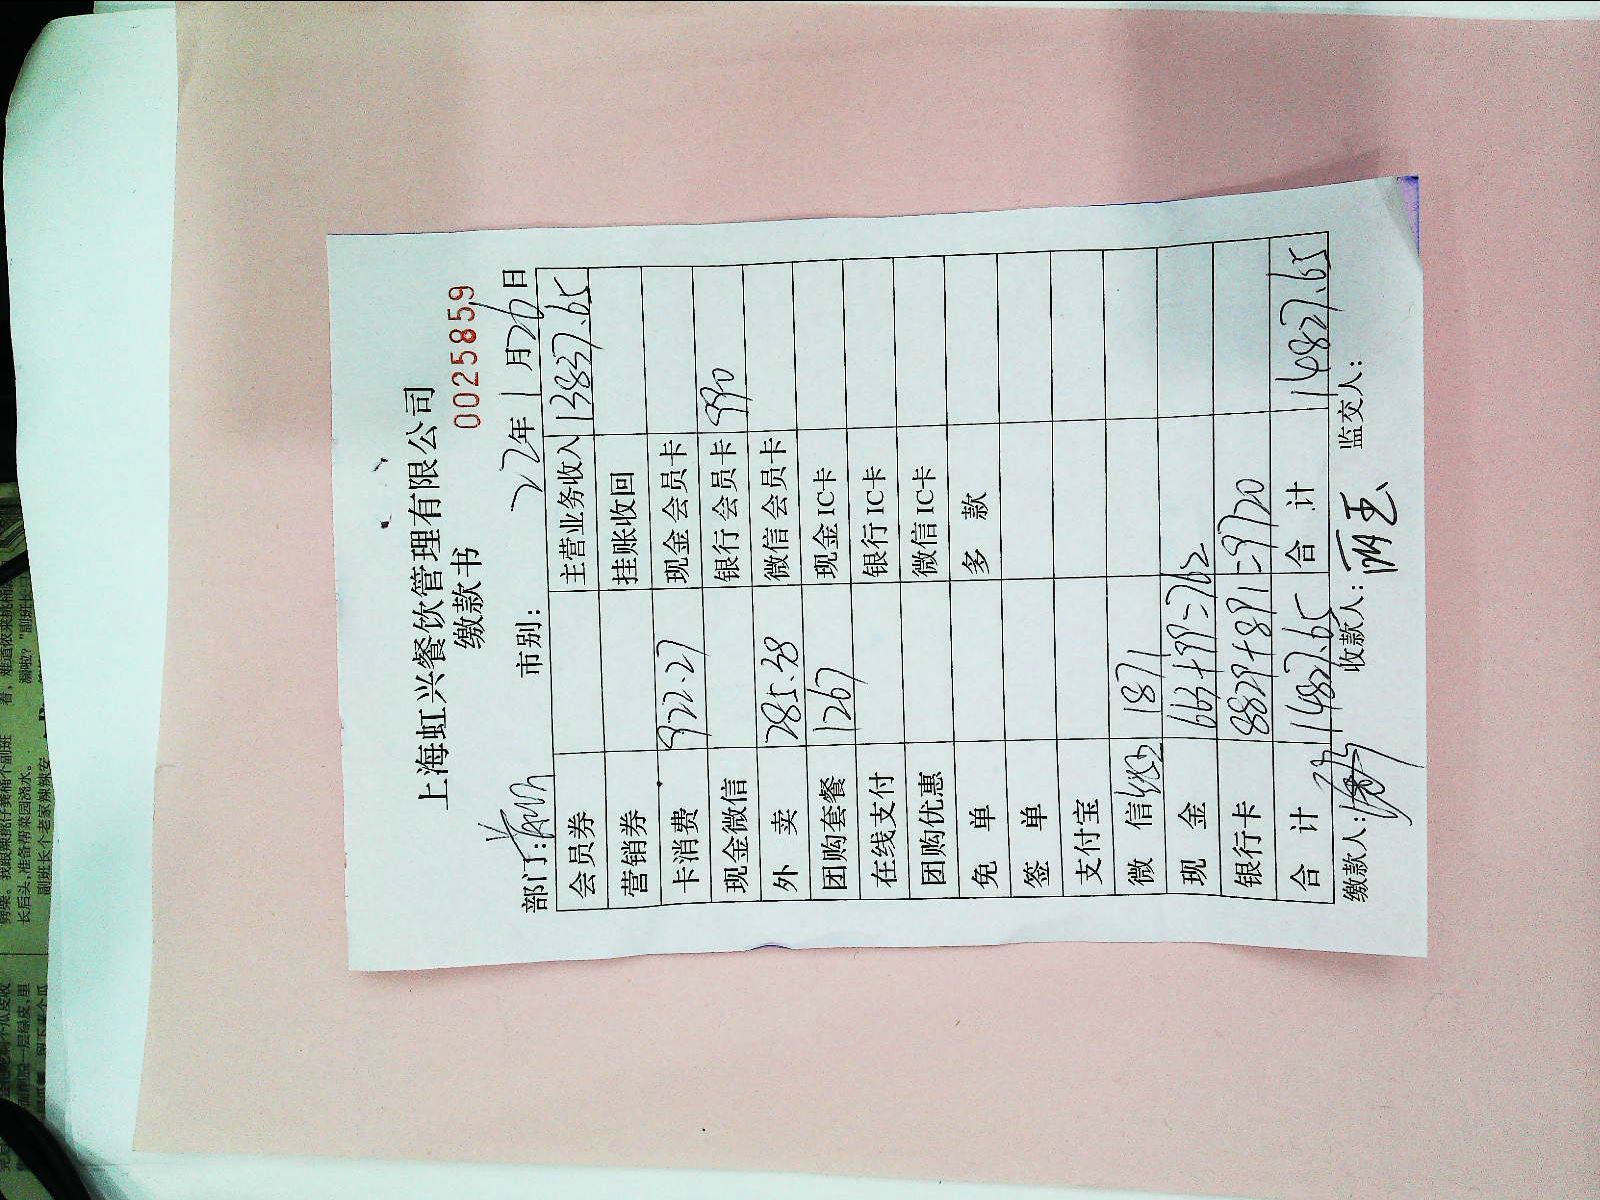 上海虹兴餐饮管理有限公司
缴款书
0025859
部门: 市别: 22年 1月26日
会员券 主营业务收入 13837.65
营销券 挂账收回
卡消费 922.27 现金会员卡
现金微信 银行会员卡 990
外 卖 285.38 微信会员卡
团购套餐 1267 现金IC卡
在线支付 银行IC卡
团购优惠 微信IC卡
免 单 多 款
签 单
支付宝
微 信 1871
现 金 663+99=762
银行卡 8829+891=9720
合 计 14827.65 合 计 14827.65
缴款人: 收款人: 监交人:
长后头,准备帮菜园浇水。
副班长个老家辣辣安